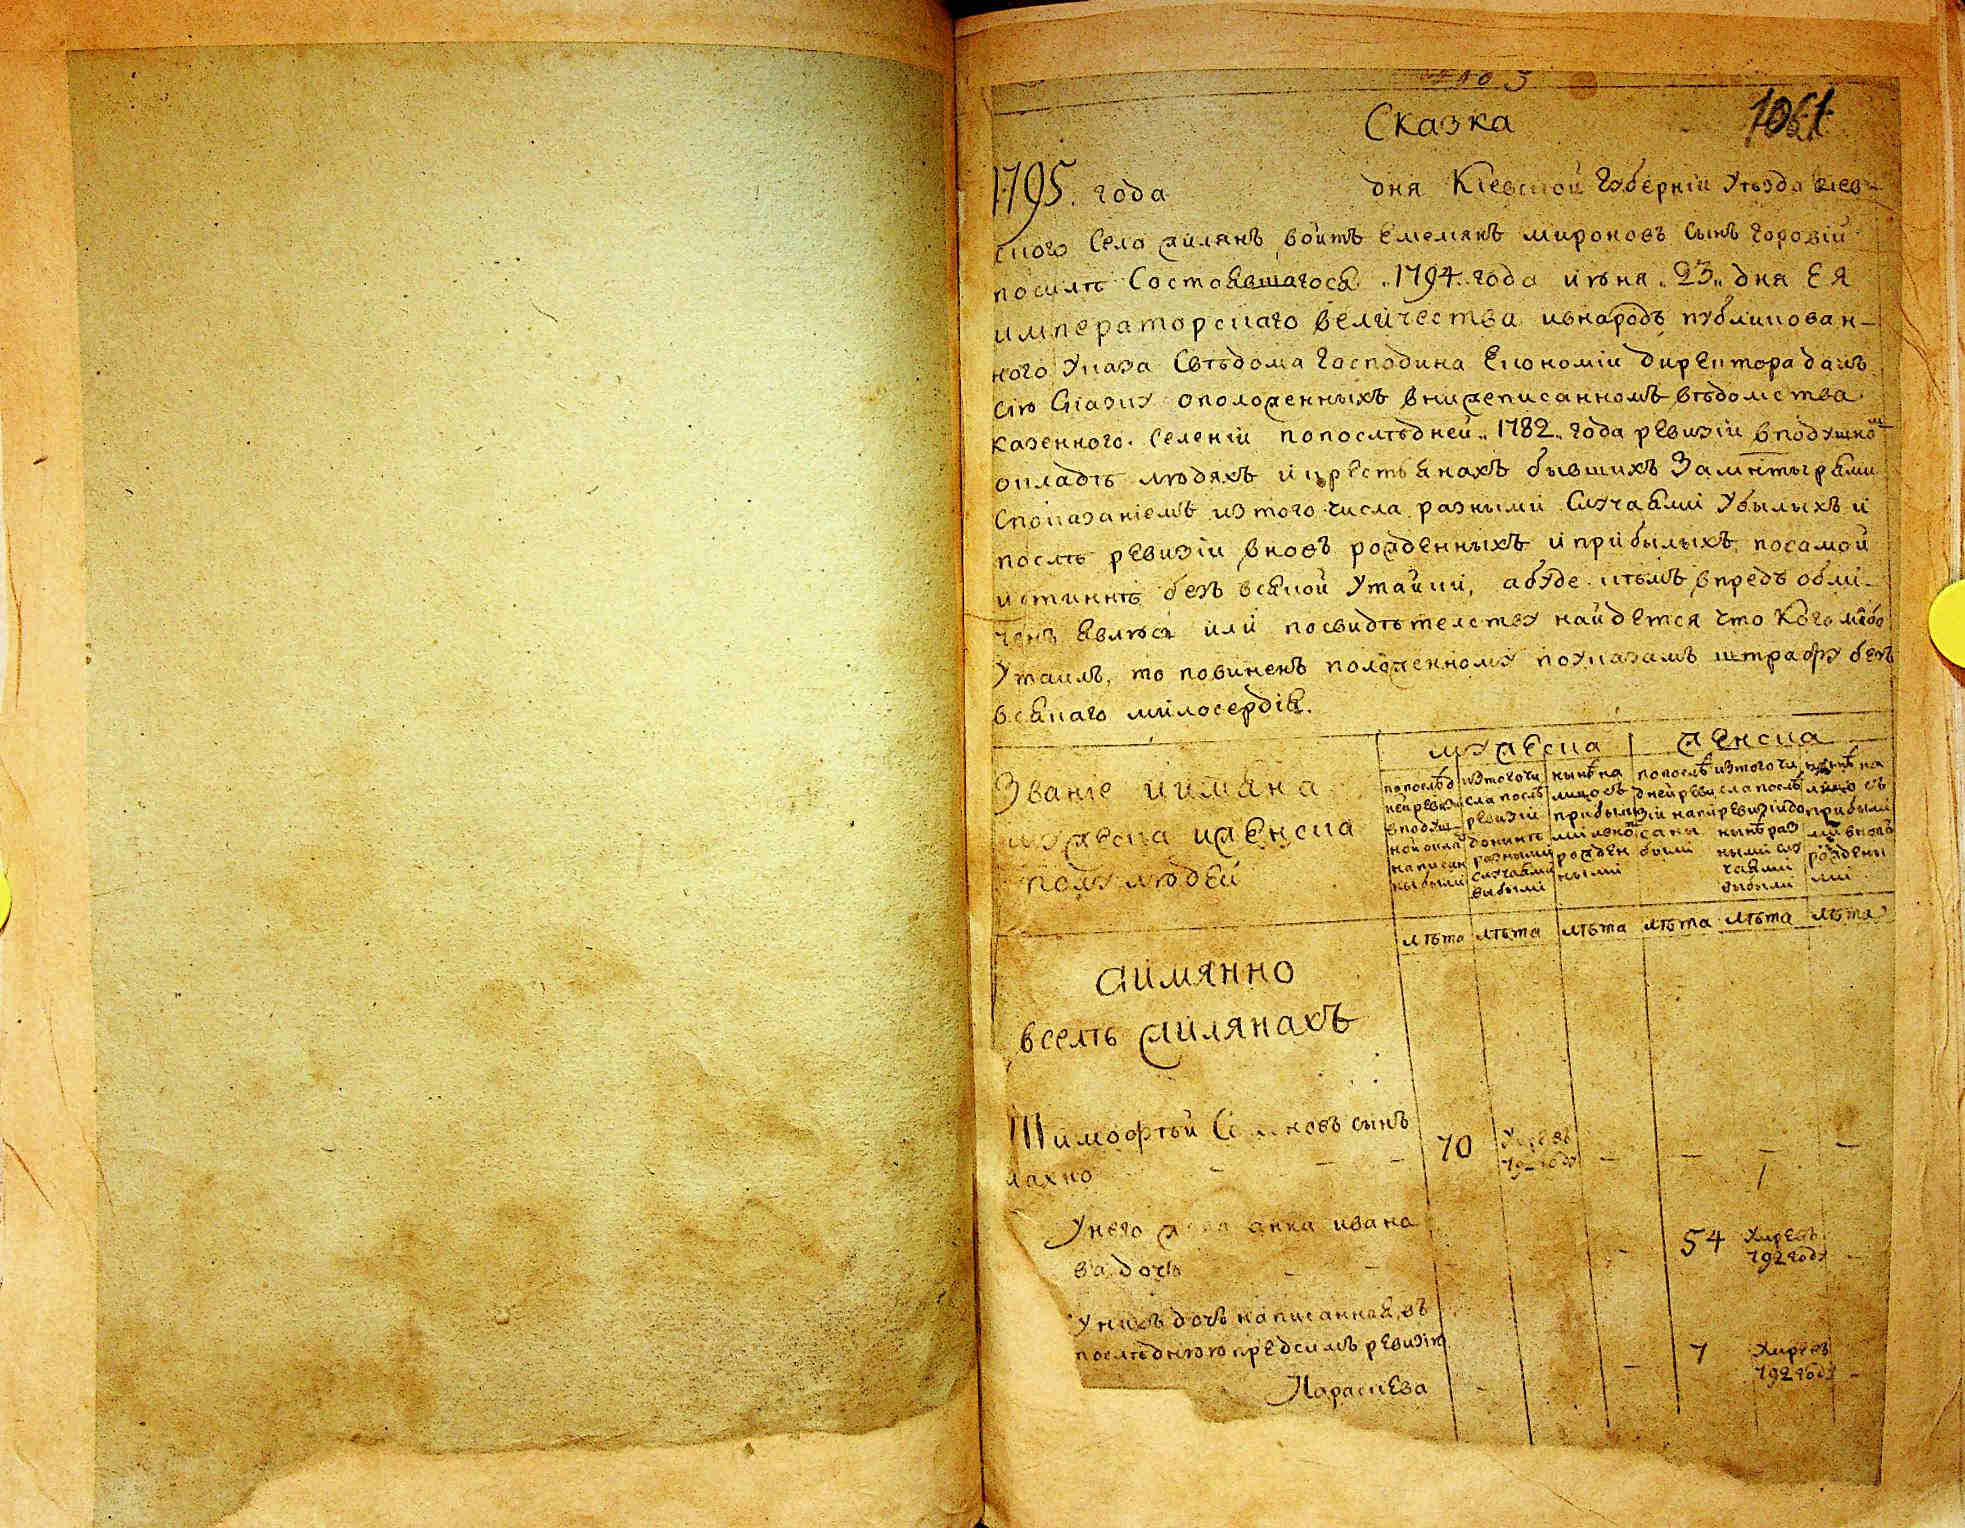 Сказка
1061
1795. года дня Кіевской Губерніи Уѣзда Кіев-
ского Села Жилянъ войтъ Емемянъ мироновъ сынъ горовій
посилѣ Состоявшагося „1794„ года июня „23„ дня ЕЯ
императорскаго величества ивнародъ публикован-
ного Указа Свѣдома Господина Економіи директора далъ
сію Сказку оположенныхъ внижеписанномъ вѣдомства
казенного селеніи попослѣдней „1782„ года ревизіи вподушном
окладѣ людяхъ икрестьянахъ бывшихъ Замнтырями
Споказаніемъ изтого числа разными Случаями Убылыхъ и
послѣ ревизіи вновъ рожденныхъ иприбылыхъ посамой
истиннѣ безъ всякой Утайки, абуде кѣмъ впредъ обли-
ченъ явлюся или посвидѣтелству найдется что Кого либо
Утаилъ, то повиненъ положенному поуказамъ штрафу безъ
всякаго милосердія.
мужеска женска
Званіе иимяна
мужеска иженска
полу людей
попослѣд
ней ревизи
вподуш-
ной окла
написан
ны были
изтого чи
сла послѣ
ревизіи
донинѣ
разными
случаями
выбыли
нынѣ на
лицо съ
прибыли
ми ивно
рожден
ными
попослѣ
дней реви
зіи напи
саны
были
изтого чи
сла послѣ
ревизіи до
нынѣ раз
ными слу
чаями
выбыли
нынѣ на
лицо съ
прибыли
ми вновъ
рождены
ми
лѣта лѣта лѣта лѣта лѣта лѣта
Аимянно
вселѣ Жилянахъ
Тимофѣй сынъ 70
лахно
Унего анна ивано 54 Умре въ
ва дочь 792 году
Унихъ дочь написанная въ
послѣднюю предсимъ ревизію 7 Умре въ
Параскева 792 году